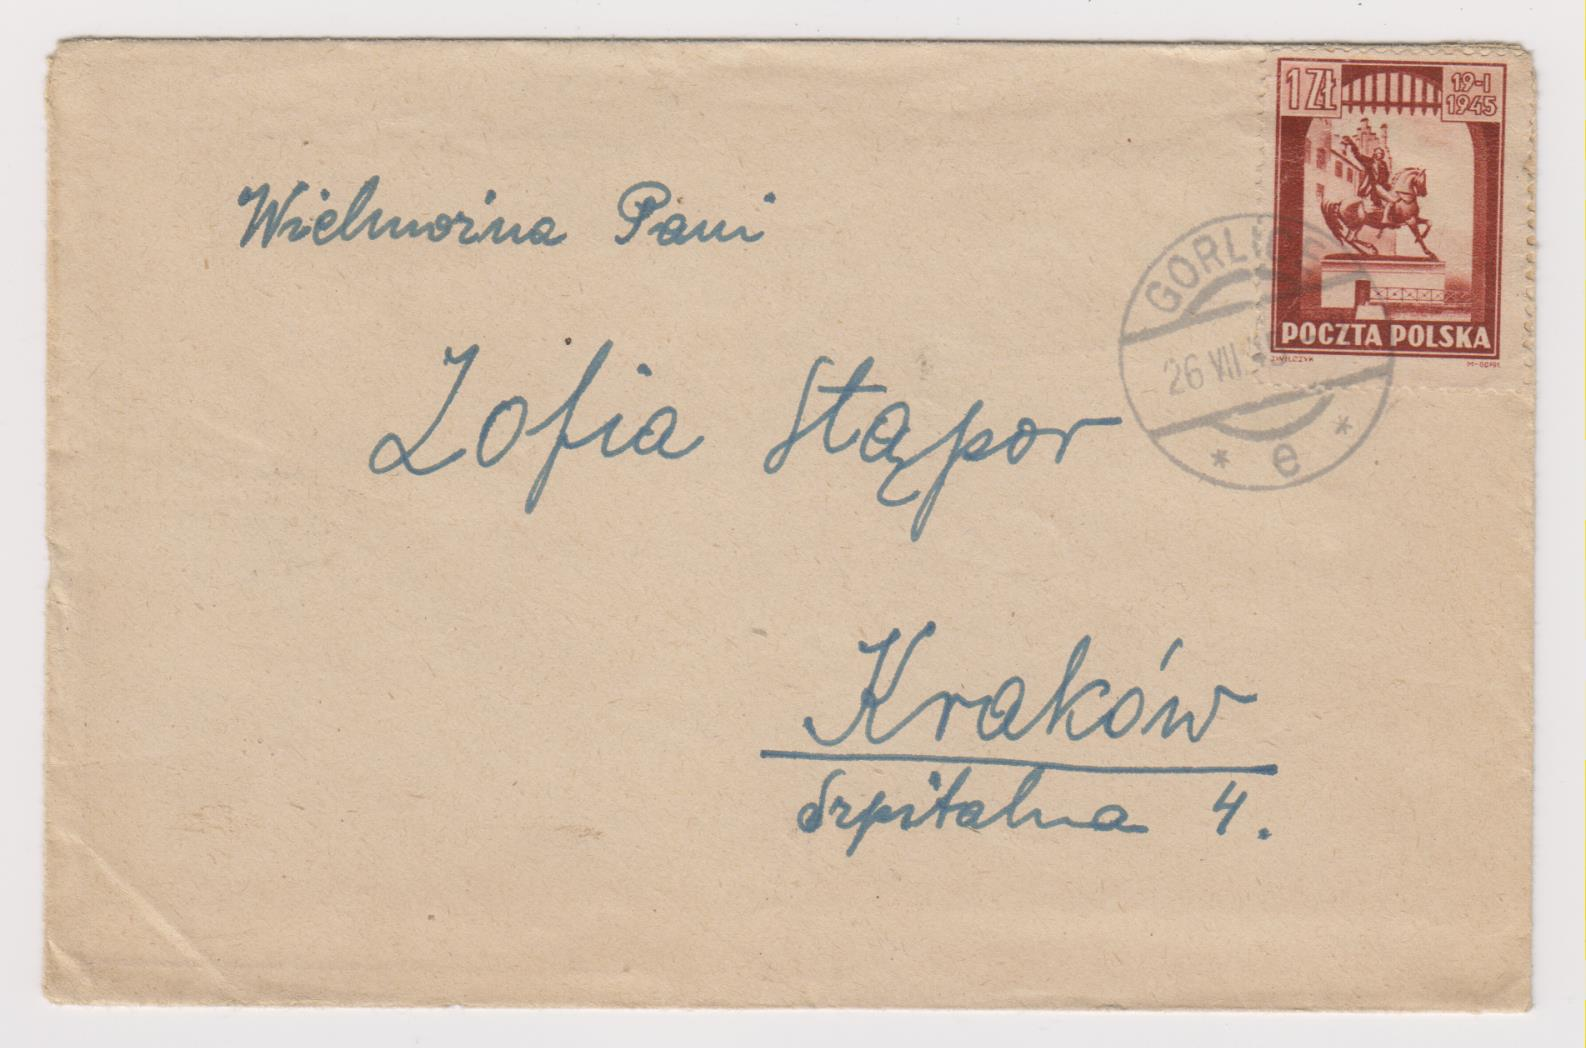 1 ZŁ
19-I
1945
POCZTA POLSKA
GORLICE
26 VII.45
* e *
Wielmożna Pani
Zofia Stąpor
Kraków
Szpitalna 4.